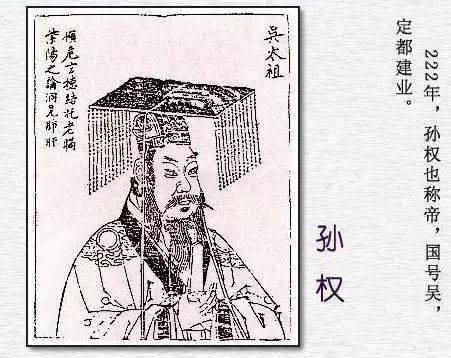 222年，孙权也称帝，国号吴，
定都建业。
孙权
吳太祖
傾危玄德結托老瞞
紫陽之論洞見肺肝